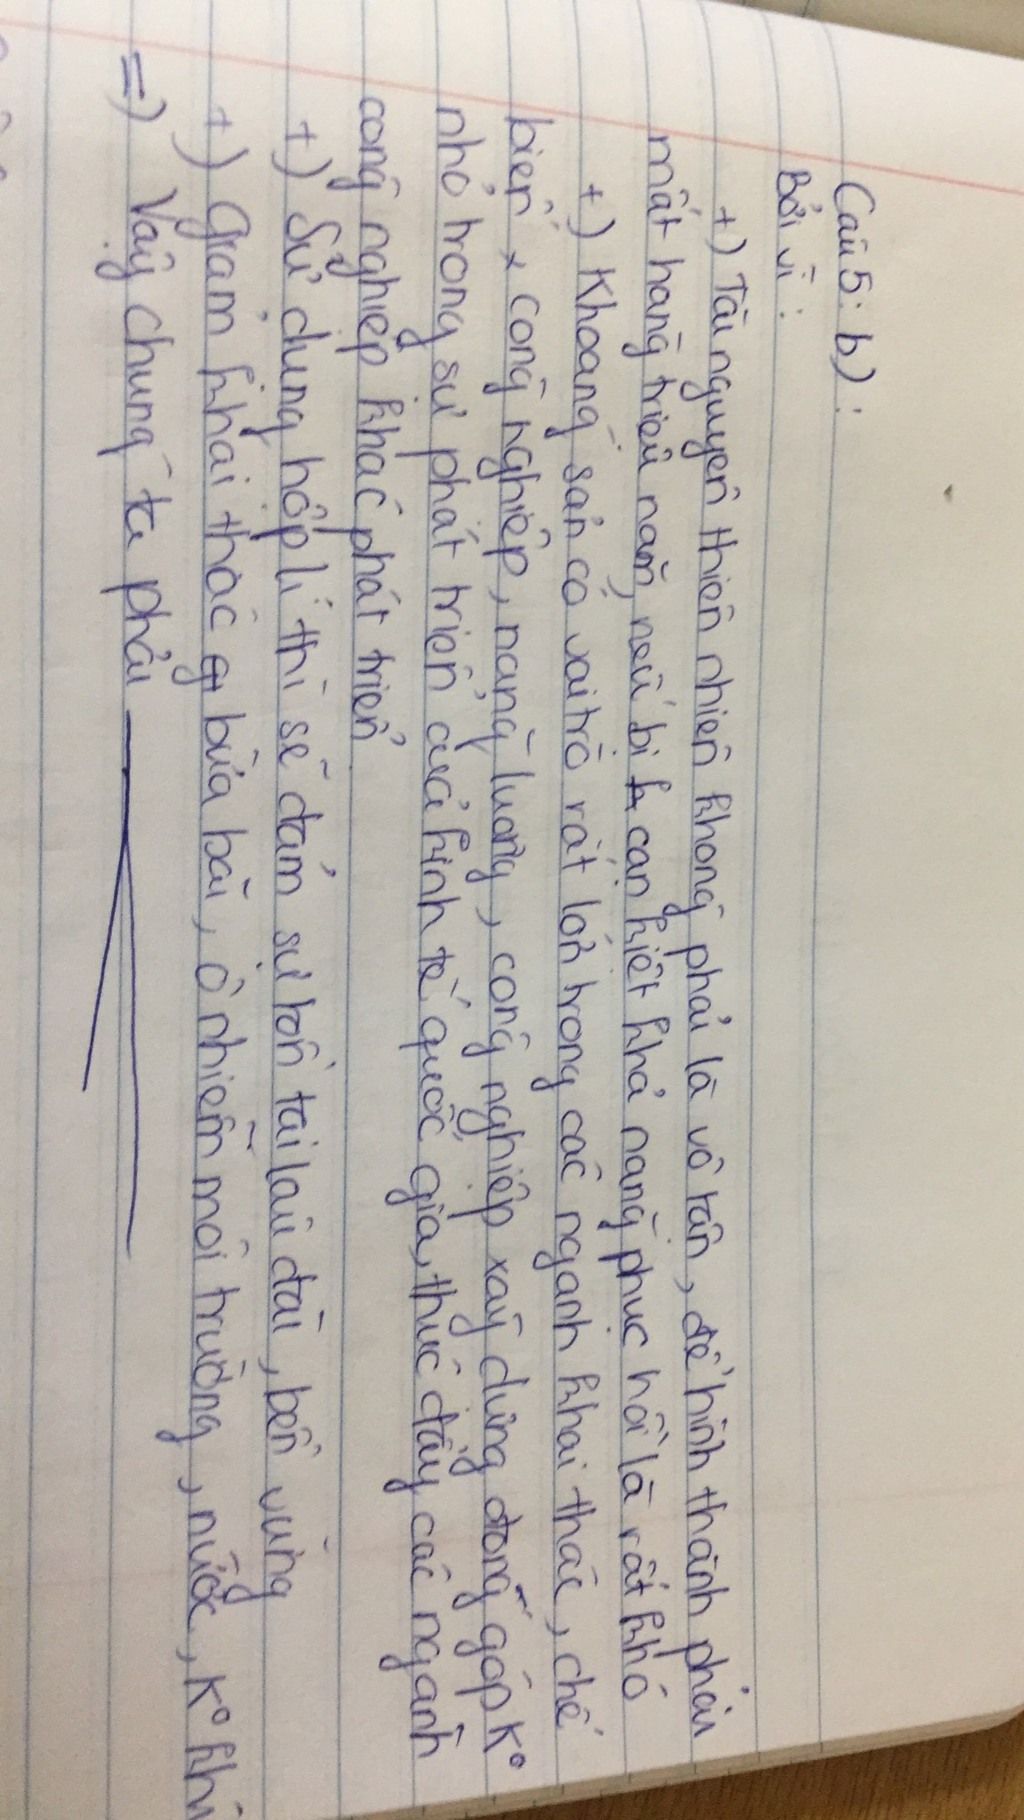 Câu 5: b):
Bởi vì:
+) Tài nguyên thiên nhiên không phải là vô tận, để hình thành phải
mất hàng triệu năm, nếu bị cạn kiệt khả năng phục hồi là rất khó
+) Khoáng sản có vai trò rất lớn trong các ngành khai thác, chế
biến, công nghiệp, năng lượng, công nghiệp xây dựng đóng góp k°
nhỏ trong sự phát triển của kinh tế quốc gia, thúc đẩy các ngành
công nghiệp khác phát triển
+) Sử dụng hợp lí thì sẽ đảm sự tồn tại lâu dài, bền vững
+) Giảm khai thác bừa bãi, ô nhiễm môi trường, nước, k° khí
=) Vậy chúng ta phải